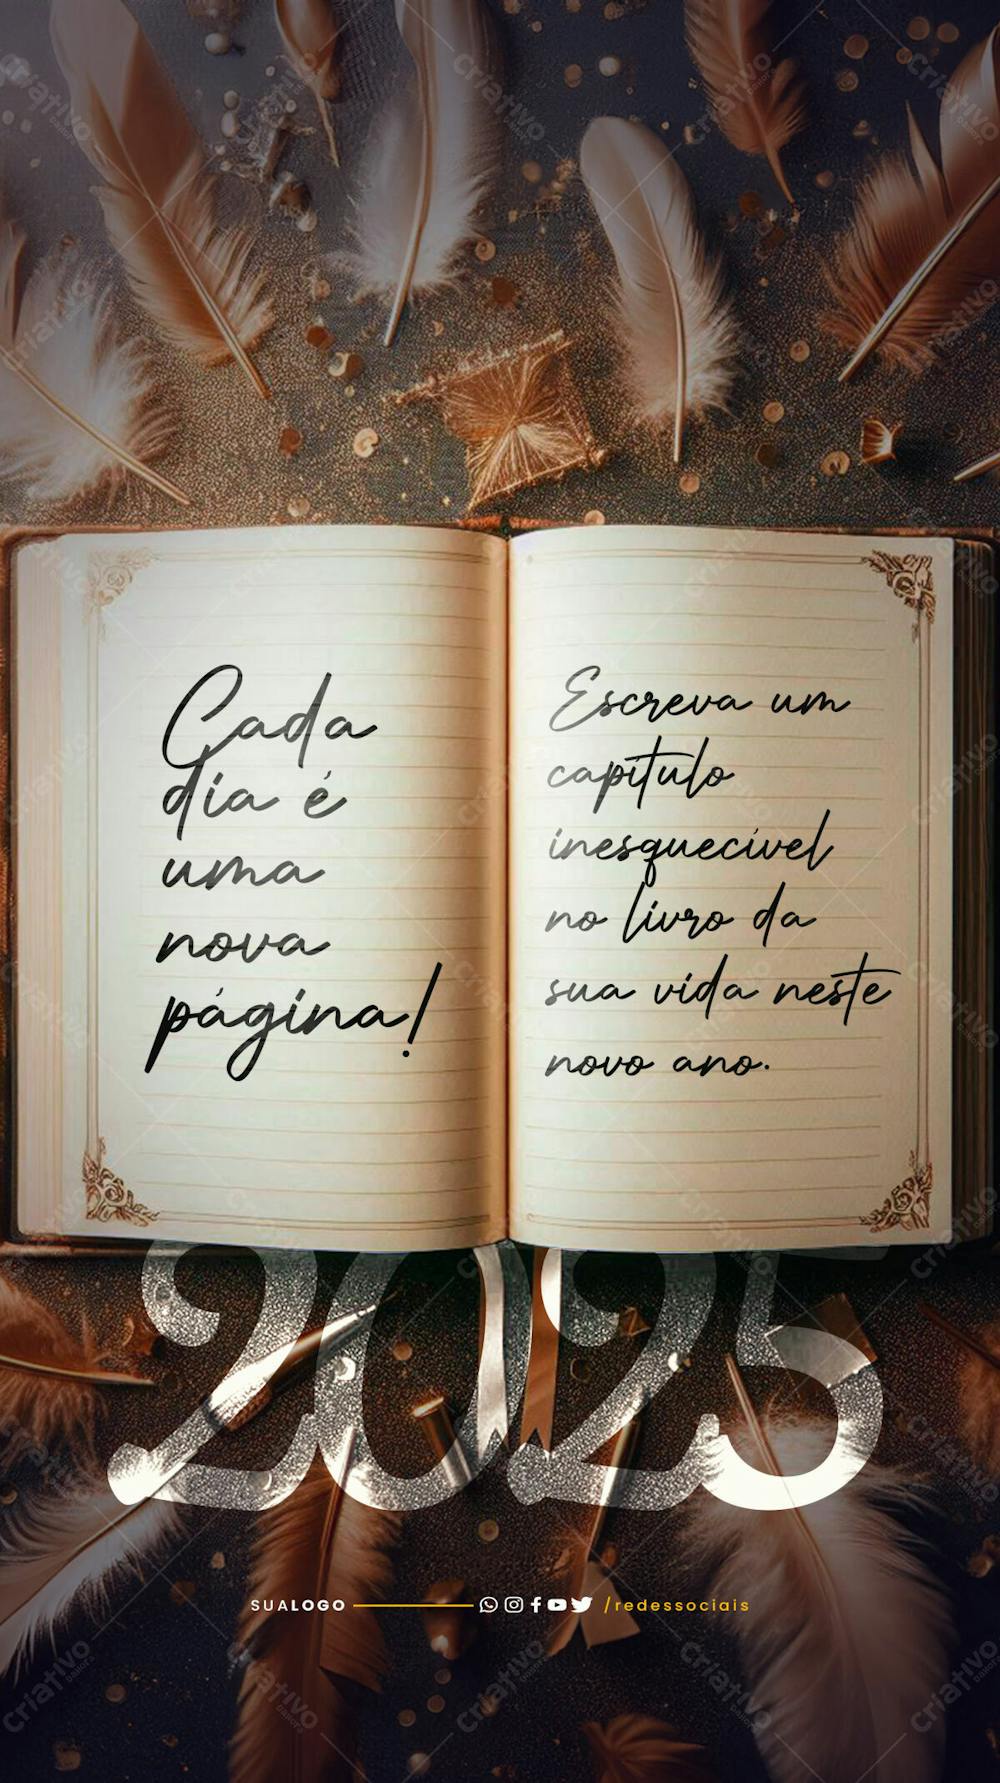 Cada
dia é
uma
nova
página!
Escreva um
capítulo
inesquecível
no livro da
sua vida neste
novo ano.
2025
SUALOGO
/redessociais
Criativo